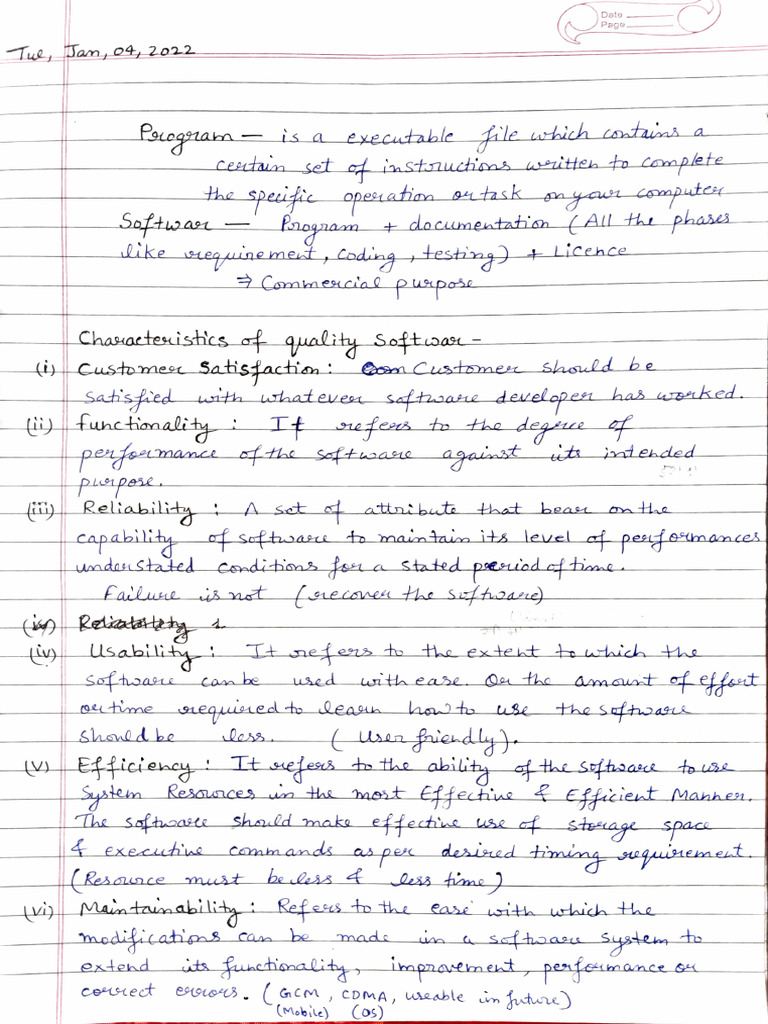 Date
Page
Tue, Jan, 04, 2022
Program — is a executable file which contains a
certain set of instructions written to complete
the specific operation or task on your computer
Softwar — Program + documentation (All the phases
like requirement, coding, testing) + Licence
⇒ Commercial purpose
Characteristics of quality Softwar -
(i) Customer Satisfaction: Customer should be
satisfied with whatever software developer has worked.
(ii) functionality: It refers to the degree of
performance of the software against its intended
purpose.
(iii) Reliability: A set of attribute that bear on the
capability of software to maintain its level of performances
under stated conditions for a stated period of time.
Failure is not (recover the software)
(iv) Reliability
(iv) Usability: It refers to the extent to which the
software can be used with ease. Or the amount of effort
or time required to learn how to use the software
should be less. (User friendly).
(v) Efficiency: It refers to the ability of the software to use
System Resources in the most Effective & Efficient Manner.
The software should make effective use of storage space
& executive commands as per desired timing requirement.
(Resource must be less & less time)
(vi) Maintainability: Refers to the ease with which the
modifications can be made in a software system to
extend its functionality, improvement, performance or
correct errors. (GCM, CDMA, useable in future)
(Mobile) (OS)